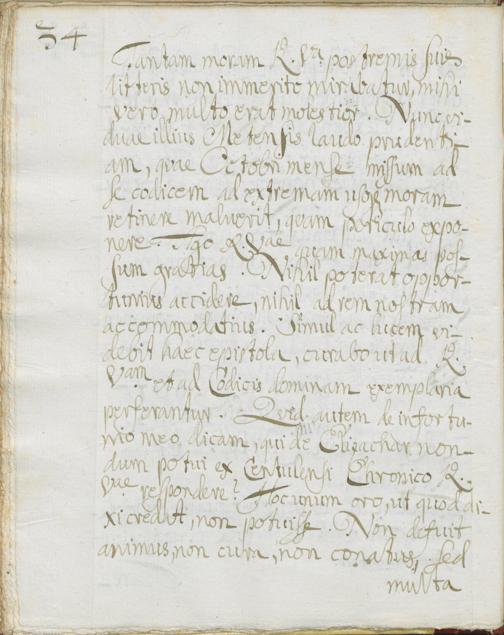 54
Tantam moram R. Vra postremis suis
litteris non immerito mirabatur, mihi
vero multo erat molestior. Nunc vi-
duae illius Metensis laudo prudenti-
am, quae Octobri mense missum ad
se codicem ad extremam usque moram
retinere maluerit, quam periculo expo-
nere. Ago R. Vae, quam maximas pos-
sum gratias. Nihil poterat oppor-
tunius accidere, nihil ad rem nostram
accommodatius. Simul ac lucem vi-
debit haec epistola, curabo ut ad R.
Vam et ad Codicis dominam exemplaria
perferantur. Quid autem de infortu-
nio meo dicam, qui de non-
dum potui ex Centulensi Chronico R.
Vae respondere? Hoc unum oro, ut quod di-
xi credat, non potuisse. Non defuit
animus, non cura, non conatus, sed
multa